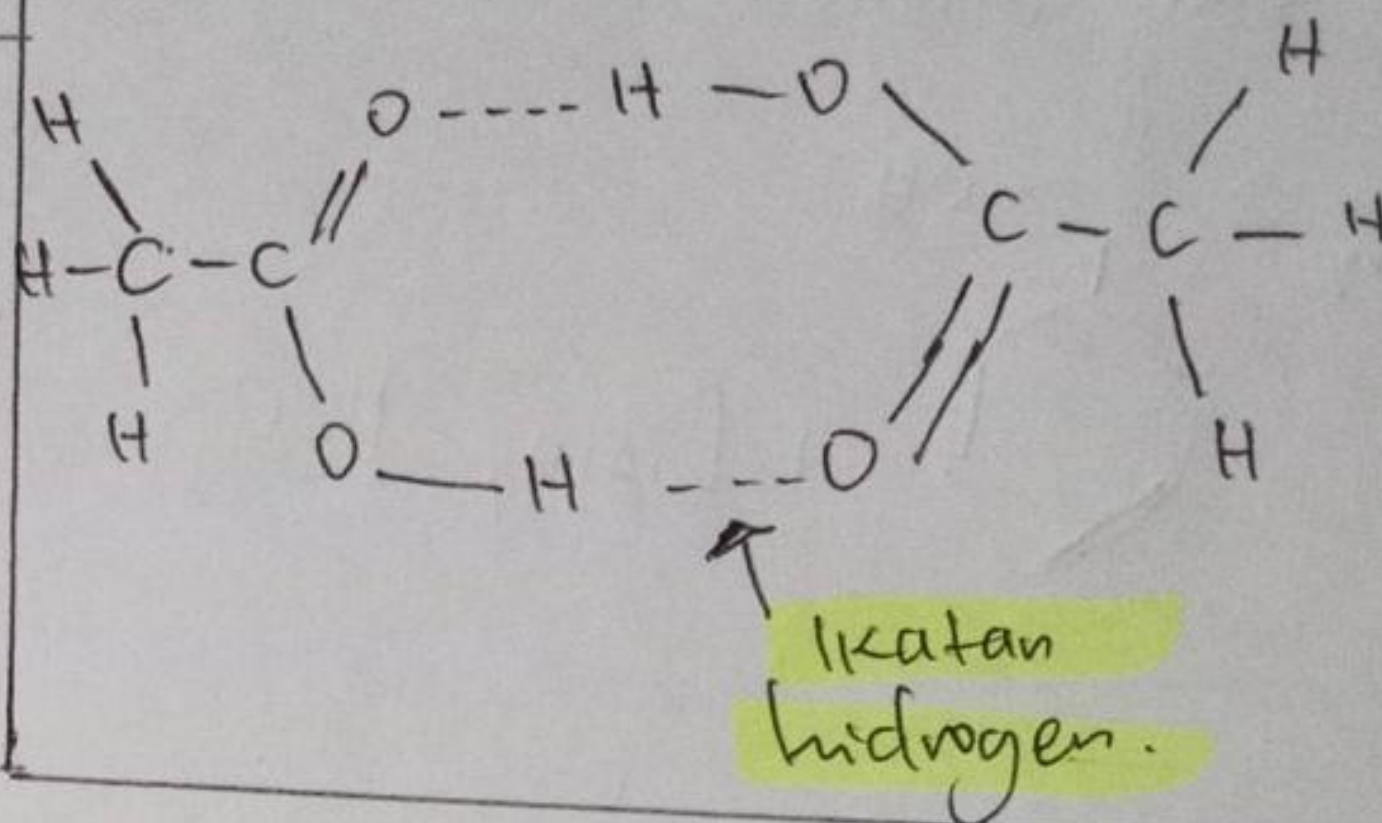 H
O ---- H — O
H
H–C–C
C – C – H
H
O — H ---- O
H
Ikatan
hidrogen.